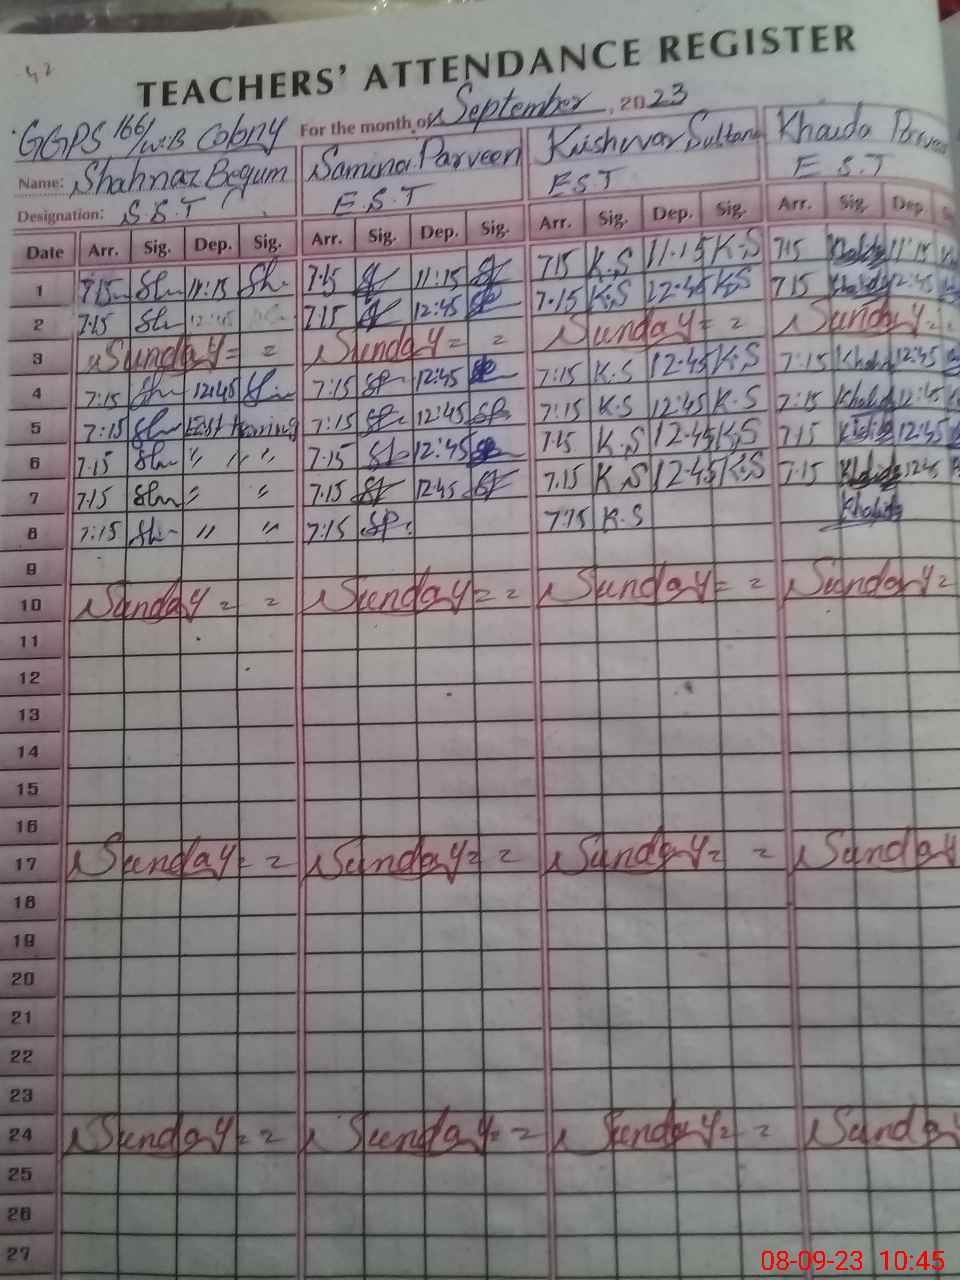 42
TEACHERS' ATTENDANCE REGISTER
GGPS 166/W.B Colony For the month of September, 2023
Name: Shahnaz Begum Samina Parveen Kishwar Sultana Khalda Parveen
Designation: S.S.T E.S.T E.S.T E.S.T
Date Arr. Sig. Dep. Sig. Arr. Sig. Dep. Sig. Arr. Sig. Dep. Sig. Arr. Sig. Dep
1 7:15 Sh 11:15 Sh 7:15 11:15 7:15 K.S 11.15 K.S 7:15 Khalda 11:15
2 7:15 Sh 12:45 7:15 12:45 7.15 K.S 12.45 K.S 7:15 Khalda 12:45
3 Sunday = = Sunday = = Sunday = = Sunday = =
4 7:15 Sh 12:45 Sh 7:15 SP 12:45 7:15 K.S 12.45 K.S 7:15 Khalda 12:45
5 7:15 Sh 7:15 SP 12:45 SP 7:15 K.S 12.45 K.S 7:15 Khalda 12:45
6 7.15 Sh " " " 7.15 12:45 7.15 K.S 12.45 K.S 7.15 Khalda 12:45
7 7.15 Sh " " 7.15 12:45 7.15 K.S 12.45 K.S 7.15 Khalda 12:45
8 7:15 Sh " " 7:15 SP. 7:15 K.S Khalda
9
10 Sunday = = Sunday = = Sunday = = Sunday =
11
12
13
14
15
16
17 Sunday = = Sunday = = Sunday = = Sunday
18
19
20
21
22
23
24 Sunday = = Sunday = = Sunday = = Sunday
25
26
27
08-09-23 10:45